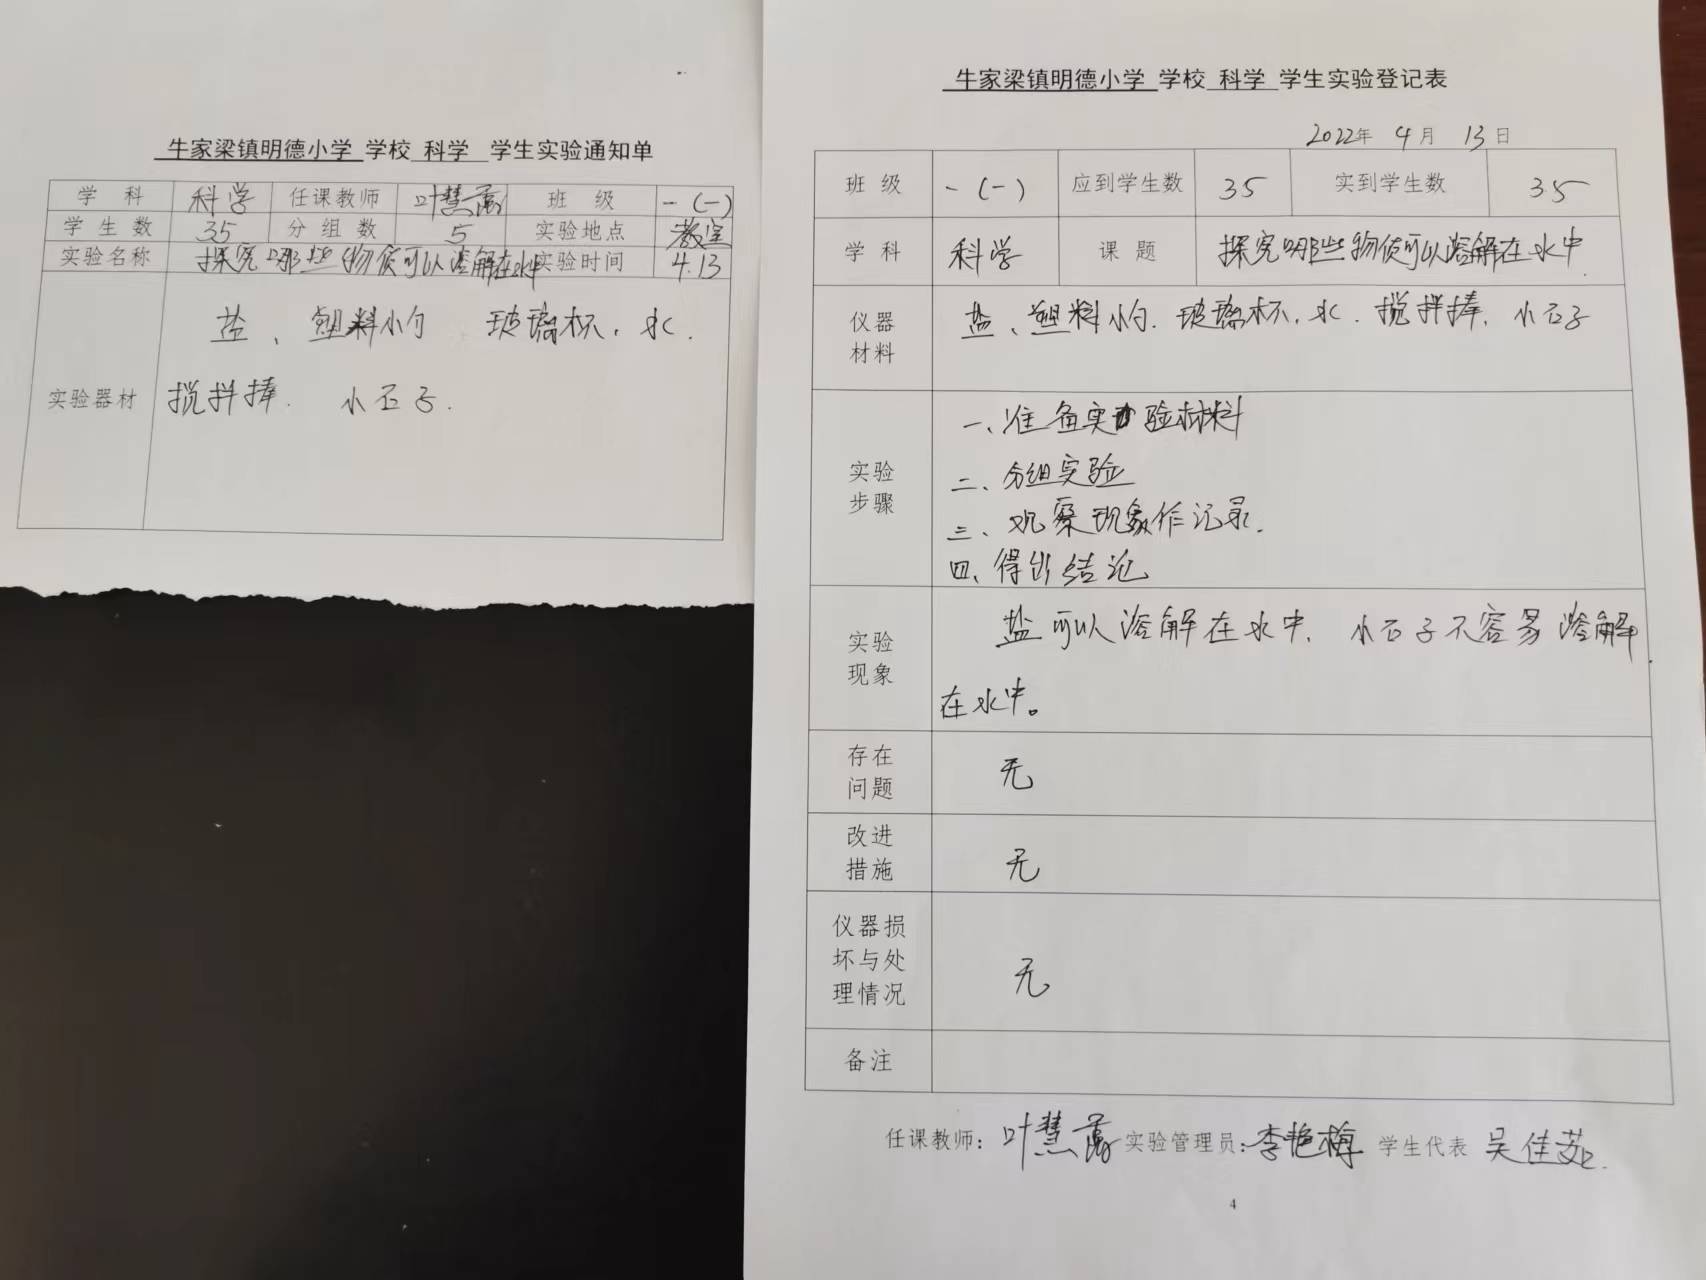 牛家梁镇明德小学 学校 科学 学生实验通知单
学 科 科学 任课教师 叶慧 班 级 一(一)
学 生 数 35 分 组 数 5 实验地点 教室
实验名称 探究哪些物质可以溶解在水中 实验时间 4.13
实验器材
盐、塑料小勺 玻璃杯,水.
搅拌捧. 小石子.
牛家梁镇明德小学 学校 科学 学生实验登记表
2022年 4月 13日
班 级 一(一) 应到学生数 35 实到学生数 35
学 科 科学 课 题 探究哪些物质可以溶解在水中.
仪器
材料
盐、塑料小勺.玻璃杯,水.搅拌捧.小石子
实验
步骤
一、准备实验材料
二、分组实验
三、观察现象作记录.
四、得出结论
实验
现象
盐可以溶解在水中.小石子不容易溶解
在水中。
存在
问题
无
改进
措施
无
仪器损
坏与处
理情况
无
备注
任课教师：叶慧 实验管理员：李艳梅 学生代表 吴佳
4